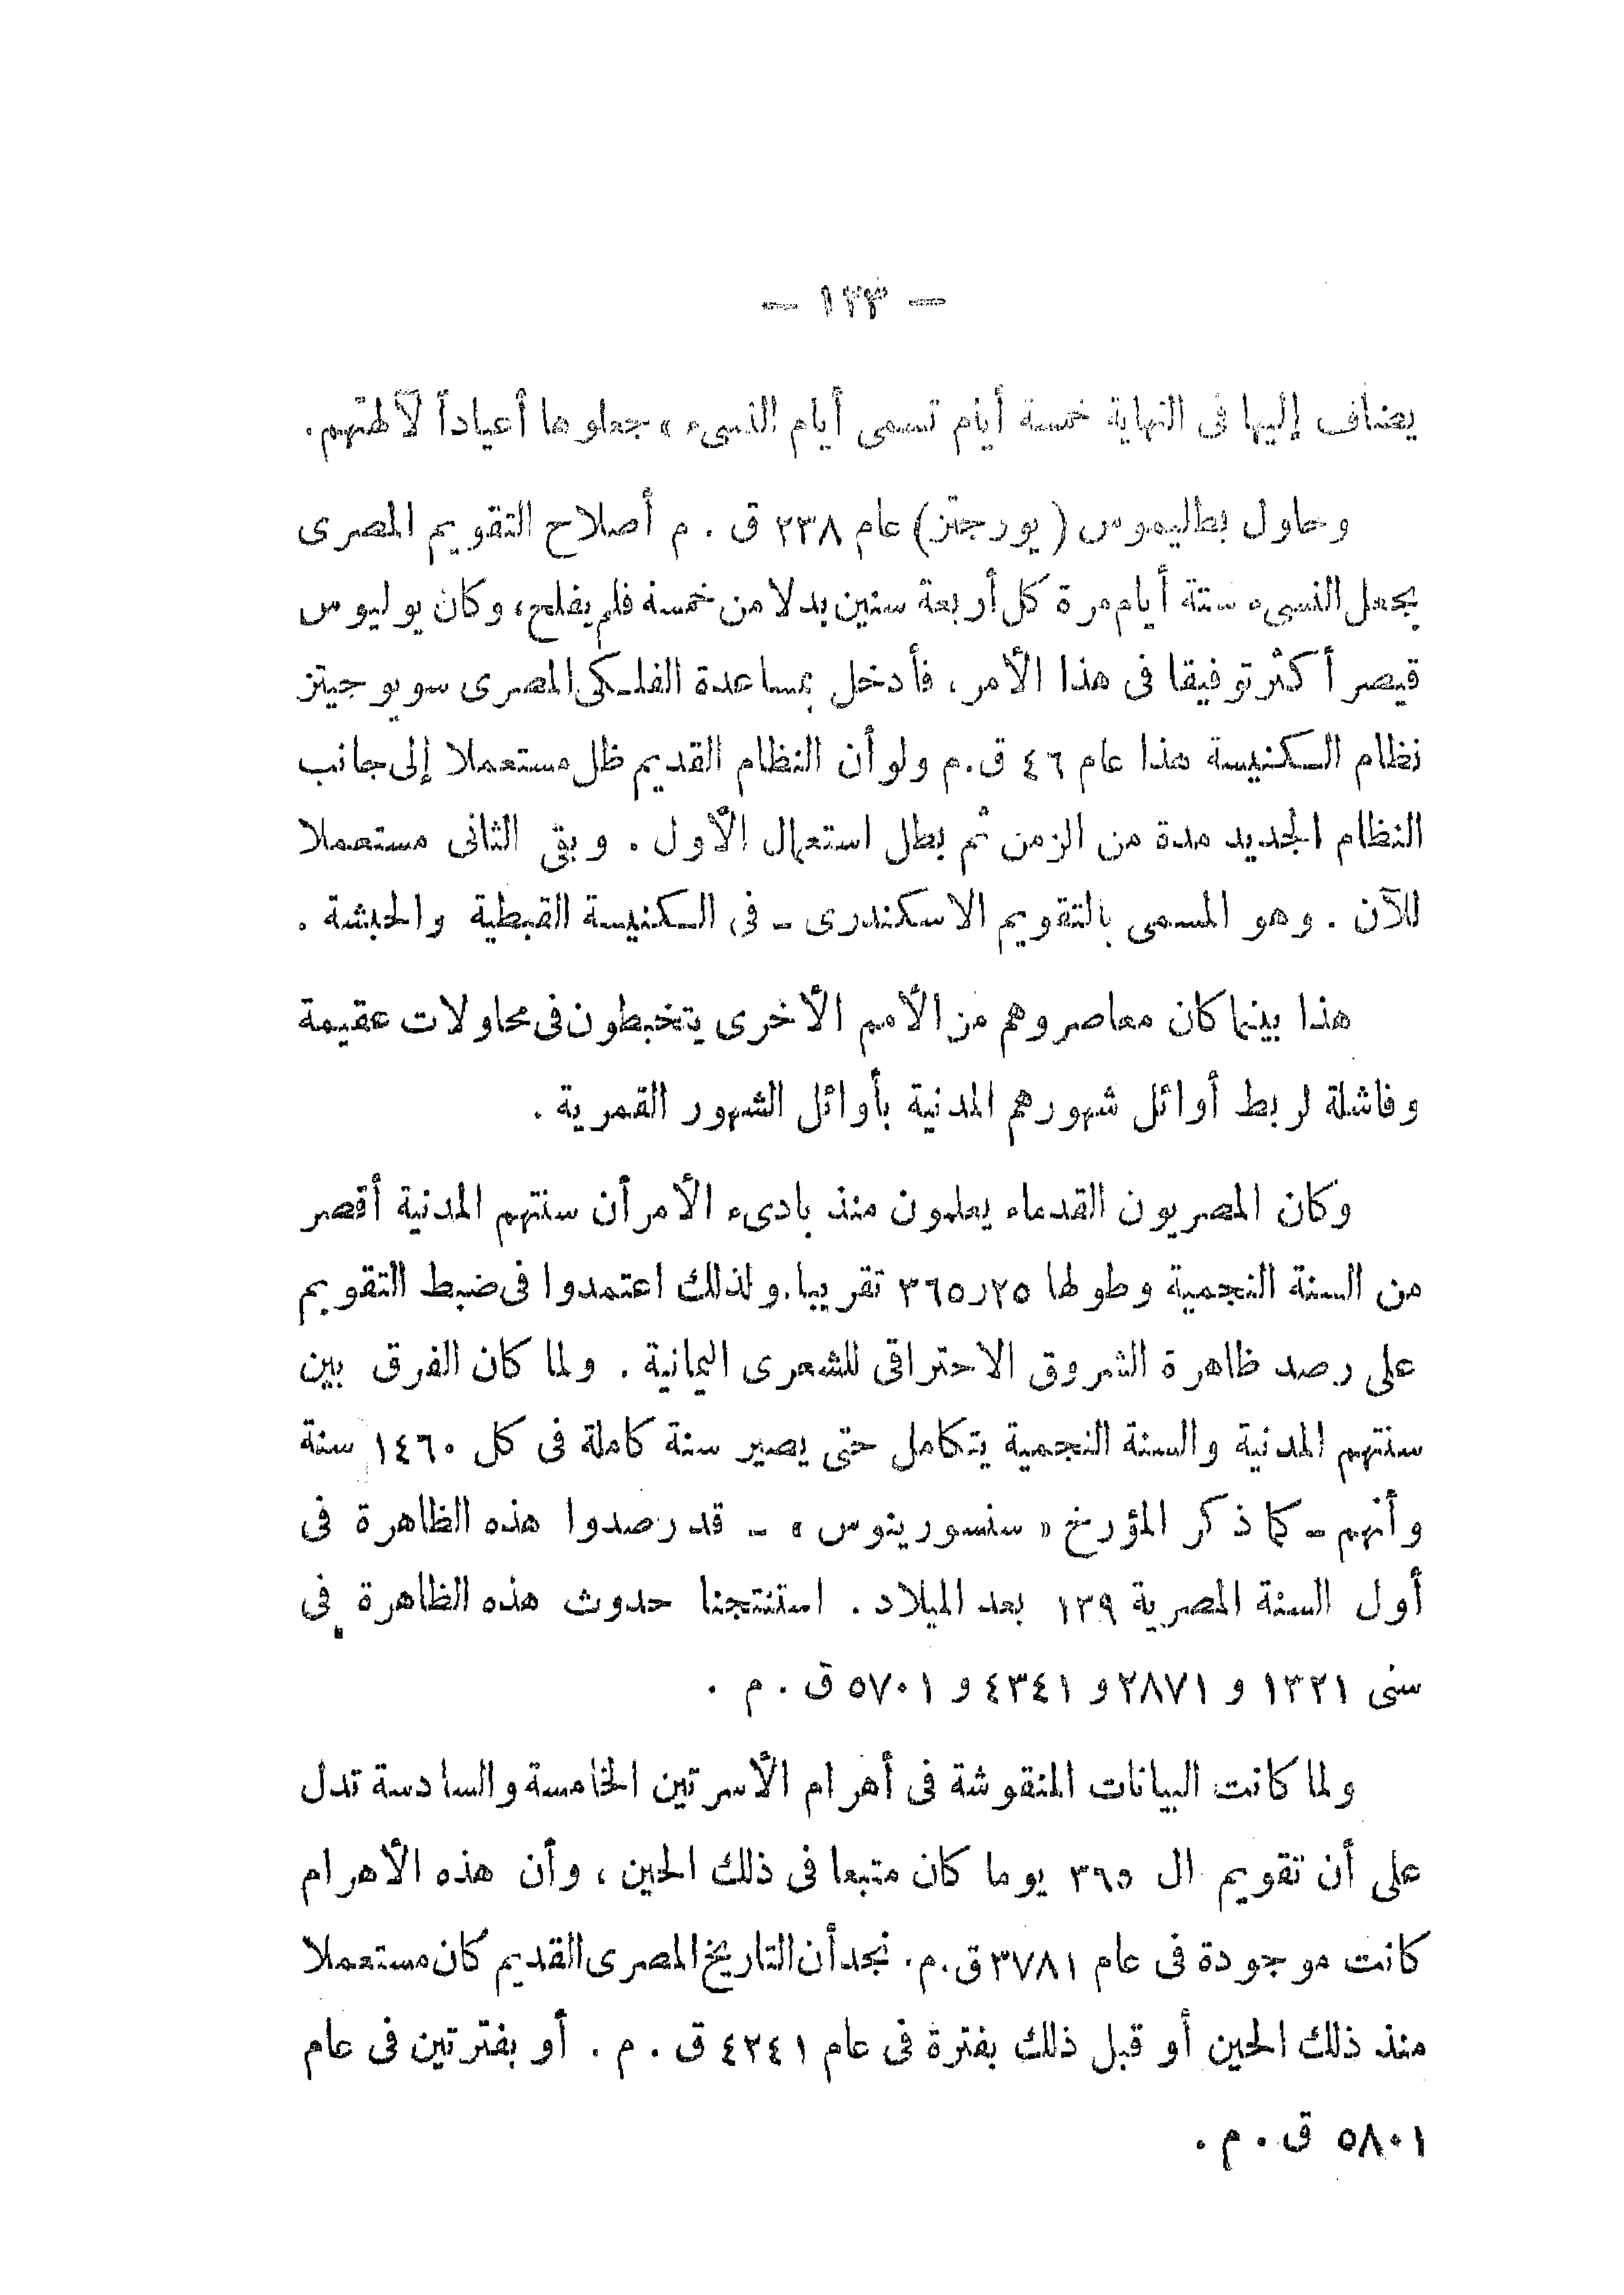 — ١٢٣ —
يضاف إليها فى النهاية خمسة أيام تسمى أيام النسىء ، جعلوها أعياداً لآلهتهم .
وحاول بطليموس ( يورجتز ) عام ٢٣٨ ق . م أصلاح التقويم المصرى
بجعل النسىء ستة أيام مرة كل أربعة سنين بدلا من خمسة فلم يفلح ، وكان يوليوس
قيصر أكثر توفيقا فى هذا الأمر ، فأدخل بمساعدة الفلكى المصرى سوبو جينز
نظام الكنيسة هذا عام ٤٦ ق.م ولو أن النظام القديم ظل مستعملا إلى جانب
النظام الجديد مدة من الزمن ثم بطل استعمال الأول . وبقى الثانى مستعملا
للآن . وهو المسمى بالتقويم الاسكندرى - فى الكنيسة القبطية والحبشة .
هذا بينما كان معاصروهم من الأمم الأخرى يتخبطون فى محاولات عقيمة
وفاشلة لربط أوائل شهورهم المدنية بأوائل الشهور القمرية .
وكان المصريون القدماء يعلمون منذ بادىء الأمر أن سنتهم المدنية أقصر
من السنة النجمية وطولها ٣٦٥٫٢٥ تقريبا . ولذلك اعتمدوا فى ضبط التقويم
على رصد ظاهرة الشروق الاحتراقى للشعرى اليمانية . ولما كان الفرق بين
سنتهم المدنية والسنة النجمية يتكامل حتى يصير سنة كاملة فى كل ١٤٦٠ سنة
وأنهم - كما ذكر المؤرخ « سنسورينوس » - قد رصدوا هذه الظاهرة فى
أول السنة المصرية ١٣٩ بعد الميلاد . استنتجنا حدوث هذه الظاهرة فى
سنى ١٣٢١ و ٢٨٧١ و ٤٣٤١ و ٥٧٠١ ق . م .
ولما كانت البيانات المنقوشة فى أهرام الأسرتين الخامسة والسادسة تدل
على أن تقويم ال ٣٦٥ يوما كان متبعا فى ذلك الحين ، وأن هذه الأهرام
كانت موجودة فى عام ٣٧٨١ ق.م. نجد أن التاريخ المصرى القديم كان مستعملا
منذ ذلك الحين أو قبل ذلك بفترة فى عام ٤٢٤١ ق . م . أو بفترتين فى عام
٥٨٠١ ق . م .